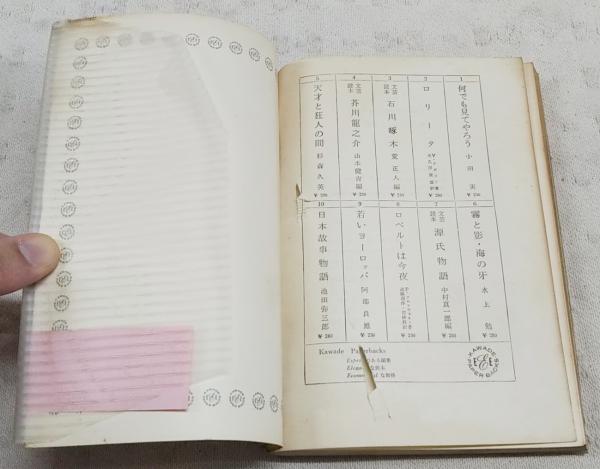 1
何でも見てやろう
小田 実
¥250
2
ロリータ
¥250
3
文芸読本
石川啄木
荒 正人編
¥250
4
文芸読本
芥川龍之介
山本健吉編
¥250
5
天才と狂人の間
杉森久英
¥250
6
霧と影・海の牙
水上 勉
¥250
7
文芸読本
源氏物語
中村真一郎編
¥250
8
ロベルトは今夜
¥250
9
若いヨーロッパ
阿部良雄
¥250
10
日本故事物語
池田弥三郎
¥280
Kawade Paperbacks
な読本
な価格
KAWADE PAPER BACKS